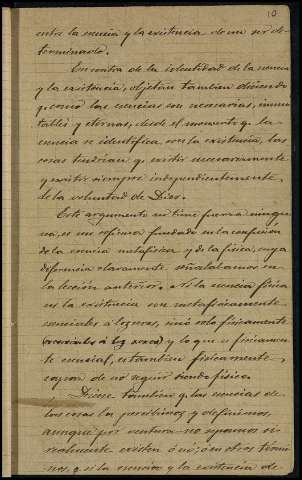 10
entre la esencia y la existencia de un ser de-
terminado.
En contra de la identidad de la esencia
y la existencia, objetan tambien diciendo
q. como las esencias son necesarias, inmu-
tables y eternas, desde el momento q. la
esencia se identifica con la existencia, las
cosas tendrian q. existir necesariamente
y existir siempre independientemente
de la voluntad de Dios.
Este argumento no tiene fuerza ningu-
na, es un sofisma fundado en la confusion
de la esencia metafisica y de la fisica, cuya
diferencia claramente señalabamos en
la lección anterior. Ni la esencia física
ni la existencia son metafisicamente
esenciales á los seres, sinó solo fisicamente
y lo que es fisicamen-
te esencial, es tambien fisicamente,
capaz de no seguir siendo fisica.
Dicese tambien q. las esencias de
las cosas las percibimos y definimos,
aunque por ventura no sepamos si
realmente existen ó no; ó en otros térmi-
nos, q. si la esencia y la existencia de